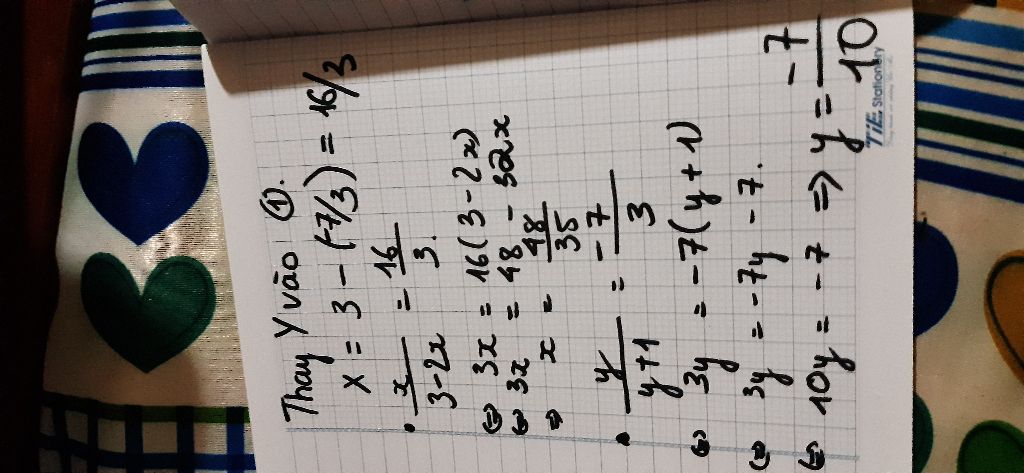 Thay Y vào ①.
X = 3 - (-7/3) = 16/3
• x/3-2x = 16/3.
⇔ 3x = 16(3-2x)
⇔ 3x = 48 - 32x
⇒ x = 48/35
• y/y+1 = -7/3
⇔ 3y = -7(y+1)
⇔ 3y = -7y - 7.
⇔ 10y = -7 ⇒ y = -7/10
TiE Stationery